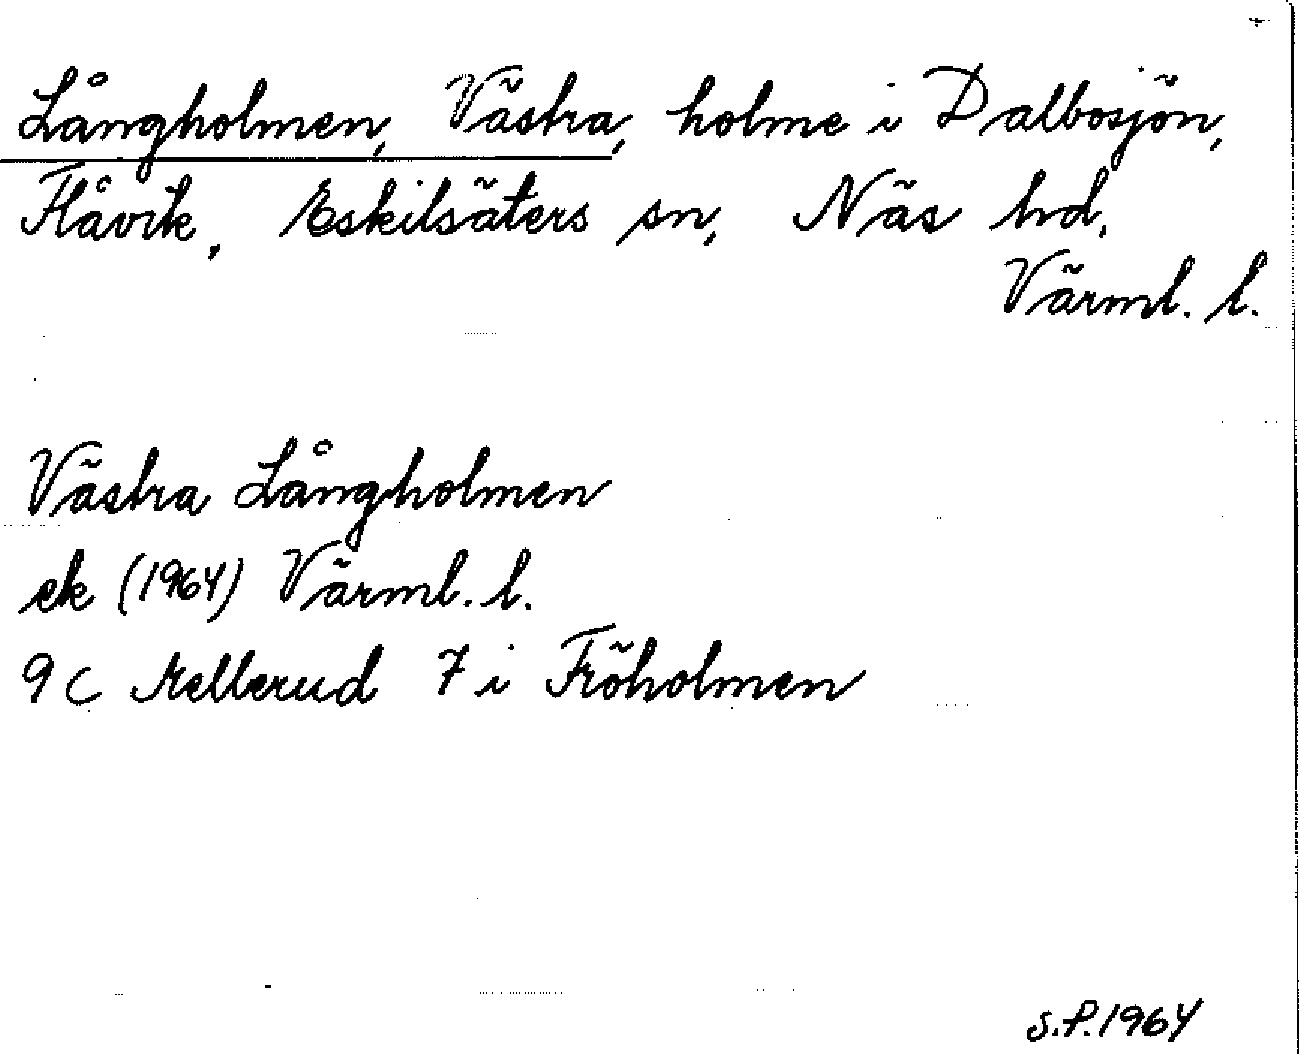 Långholmen, Västra, holme i Dalbosjön,
Flåvik, Eskilsäters sn, Näs hd,
Värml. l.
Västra Långholmen
ek (1964) Värml. l.
9C Mellerud 7 i Fröholmen
S.P. 1964